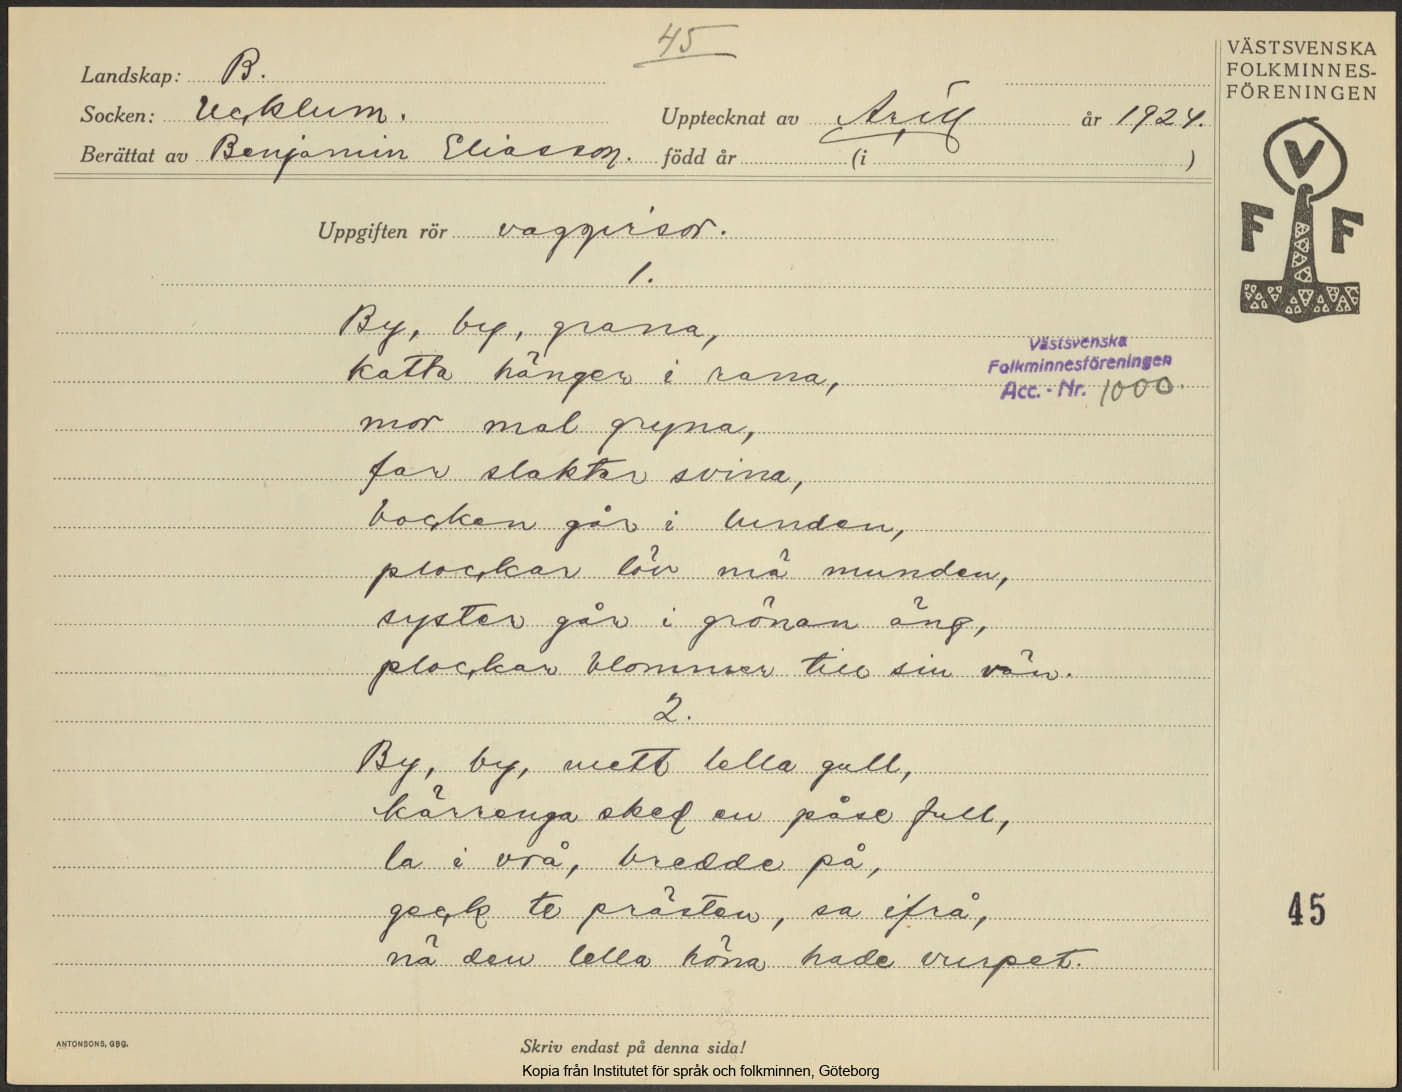 45
VÄSTSVENSKA
FOLKMINNES-
FÖRENINGEN
Landskap: B.
Socken: Ucklum. Upptecknat av Arill år 1924.
Berättat av Benjamin Eliasson. född år (i )
V
F F
Uppgiften rör vaggvisor.
1.
By, by, grana,
katta hänger i rana,
mor mal gryna,
far slaktar svina,
bocken går i lunden,
plockar löv mä munden,
syster går i grönan äng,
plockar blommer till sin vän.
Västsvenska
Folkminnesföreningen
Acc. - Nr. 1000.
2.
By, by, mett lella gull,
kärrenga sked en påse full,
la i vrå, bredde på,
geck te prästen, sa ifrå,
nä den lella höna hade vurpet.
45
ANTONSONS, GBG.
Skriv endast på denna sida!
Kopia från Institutet för språk och folkminnen, Göteborg